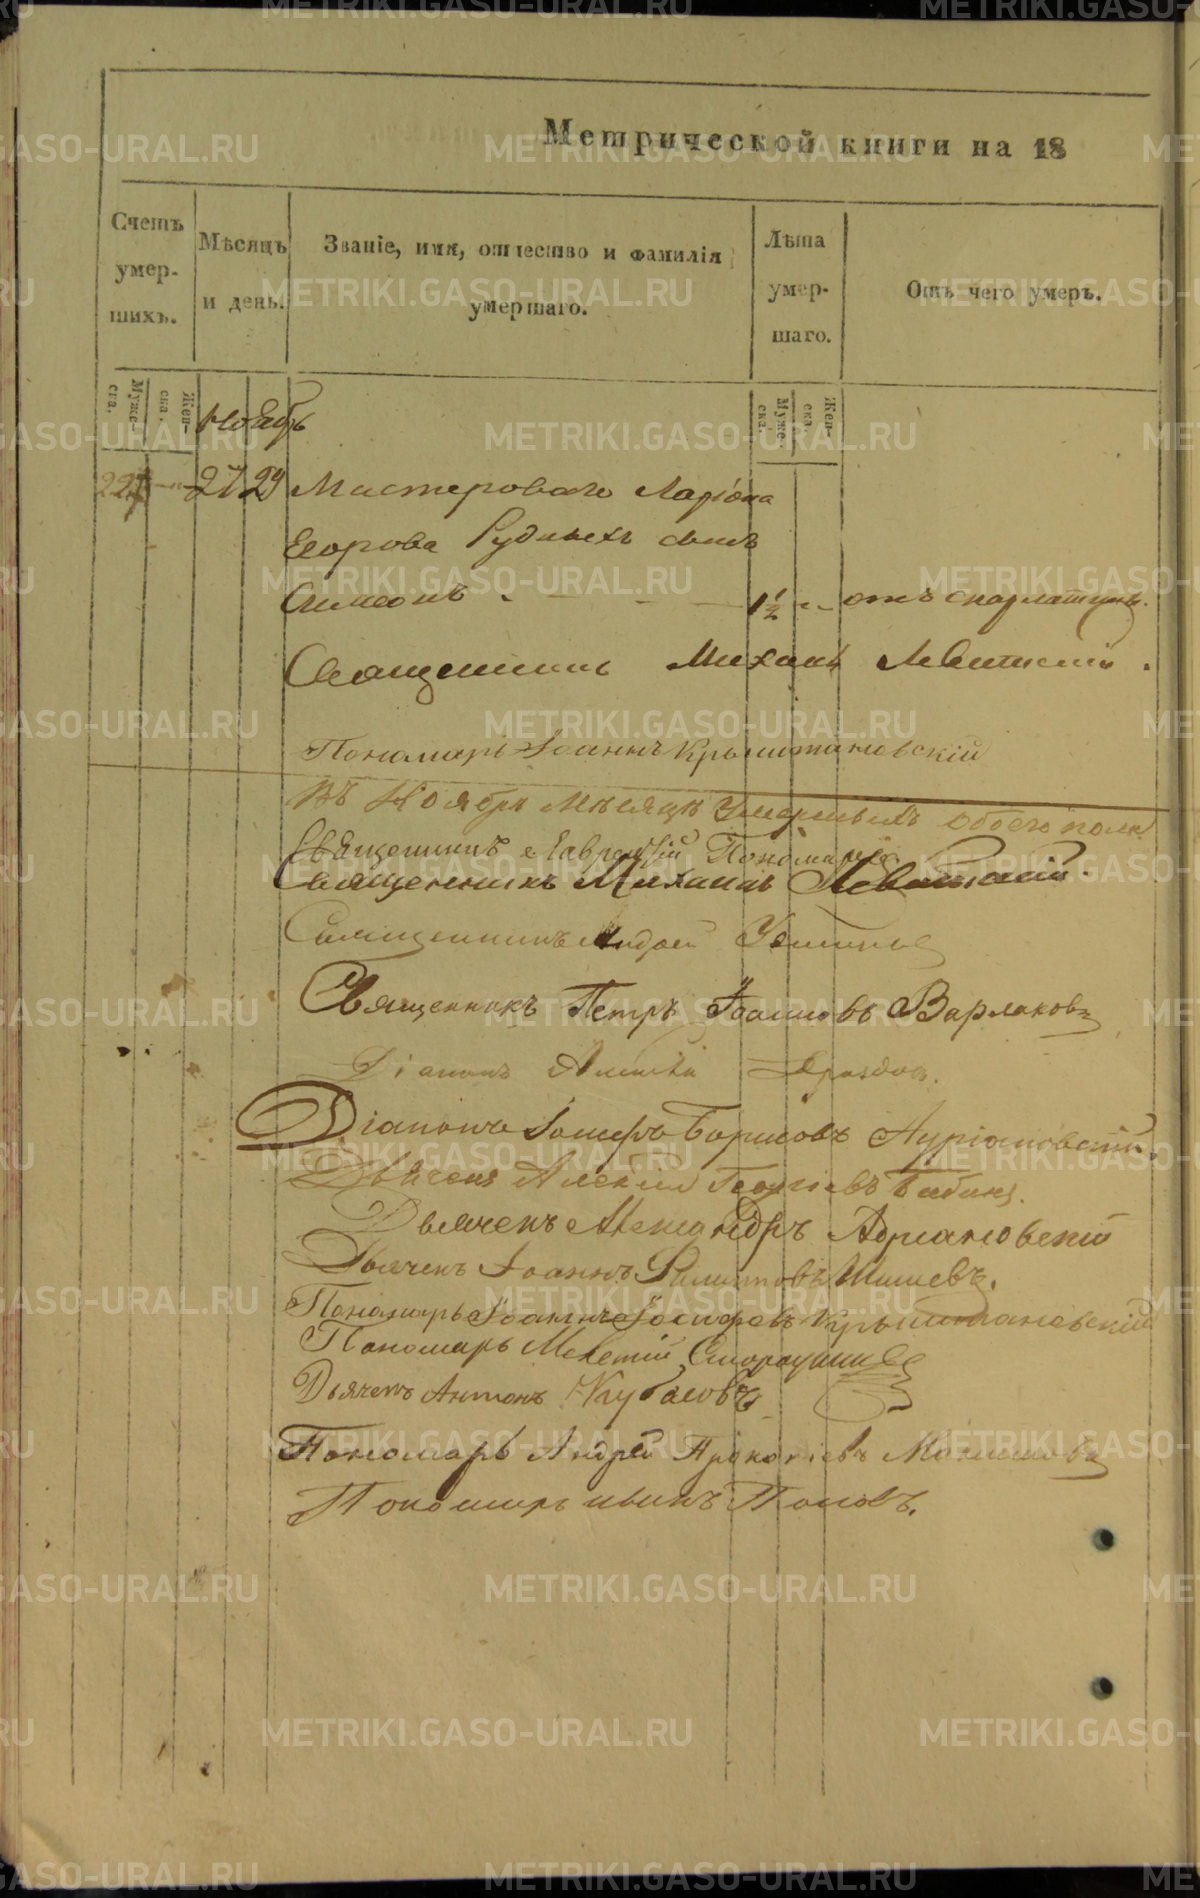 Метрической книги на 18
Счетъ умер- шихъ.
Мѣсяцъ и день.
Званіе, имя, отчество и фамилія умершаго.
Лѣта умер- шаго.
Отъ чего умеръ.
Муже- ска.
Жен- ска.
Муже- ска.
Жен- ска.
Ноябр
227 27 29 Мастероваго Ларіона
Егорова Рудныхъ сынъ
Симеонъ 1 1/2 отъ скарлатины.
Священникъ Михаилъ Левитскій.
Пономарь Іоаннъ Крыштановскій
Въ Ноябрѣ мѣсяцѣ умершихъ обоего пола
Священникъ Пономаревъ
Священникъ Михаилъ Левитскій.
Священникъ Андрей
Священникъ Петръ Іоанновъ Варлаковъ
Діаконъ Дроздов.
Діаконъ Іосифъ Борисовъ
Дьячекъ Алексій Георгіевъ Бабинъ.
Дьячекъ Александръ Адріановскій
Дьячекъ Іоаннъ Филипповъ Шишевъ.
Пономарь Іоаннъ Іосифовъ Крыштановскій
Пономарь Мелетій
Дьячекъ Антонъ Кубасовъ
Пономарь Андрей Прокопіевъ
Пономарь Иванъ Поповъ.
METRIKI.GASO-URAL.RU